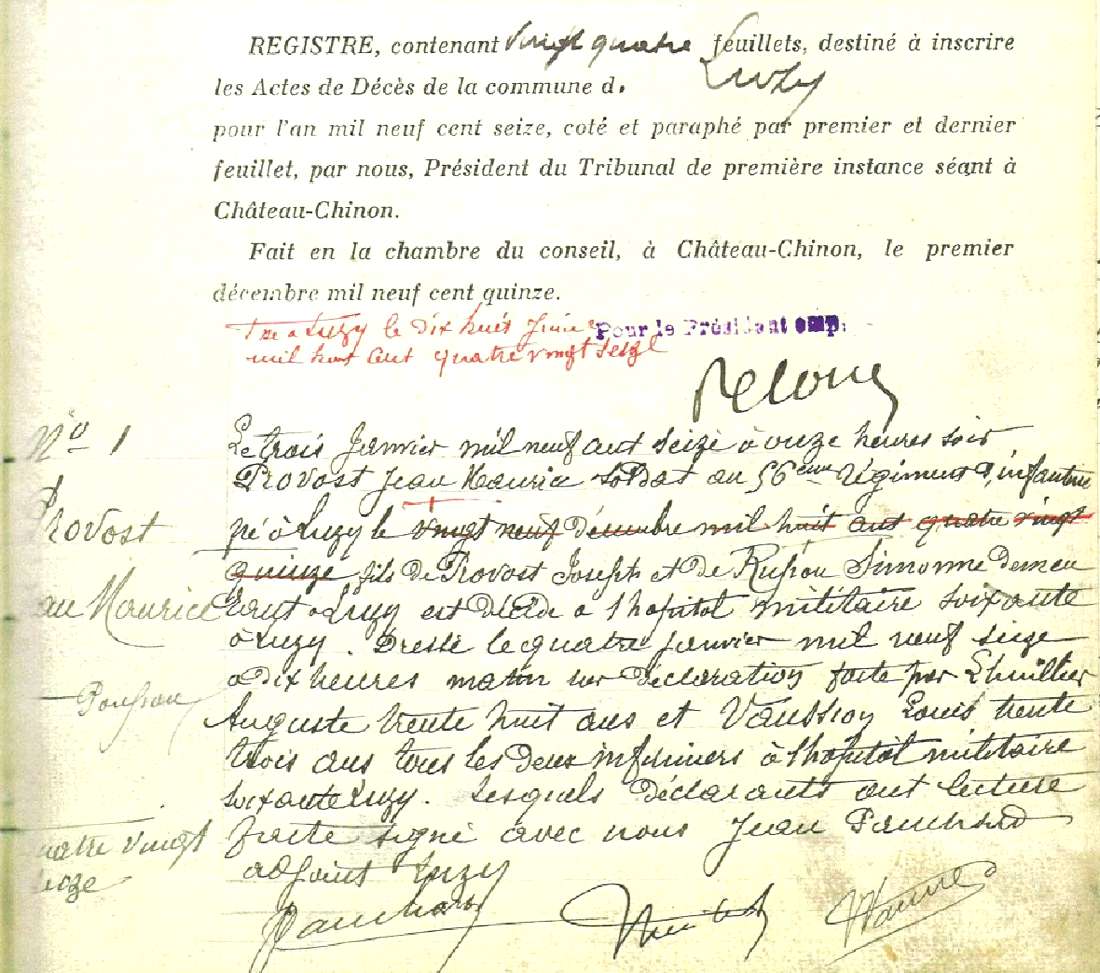 REGISTRE, contenant vingt quatre feuillets, destiné à inscrire
les Actes de Décès de la commune d. Luzy
pour l'an mil neuf cent seize, coté et paraphé par premier et dernier
feuillet, par nous, Président du Tribunal de première instance séant à
Château-Chinon.
Fait en la chambre du conseil, à Château-Chinon, le premier
décembre mil neuf cent quinze.
à Luzy le dix huit
Pour le Président emp.
mil huit cent quatre vingt seize
No 1
Le trois Janvier mil neuf cent seize à onze heures soir
Provost Jean Maurice soldat au 56eme Régiment d'infanterie
Provost
né à Luzy le vingt neuf décembre mil huit cent quatre vingt
quinze fils de Provost Joseph et de Simonne demeu
au Maurice
rant à Luzy est décédé à l'hopital militaire soixante
à Luzy. Dressé le quatre janvier mil neuf seize
à dix heures matin sur déclaration faite par Lhuillier
Auguste trente huit ans et Louis trente
trois ans tous les deux infirmiers à l'hopital militaire
soixante Luzy. Lesquels déclarants ont lecture
uatre vingt
faite signé avec nous Jean
adjoint Luzy